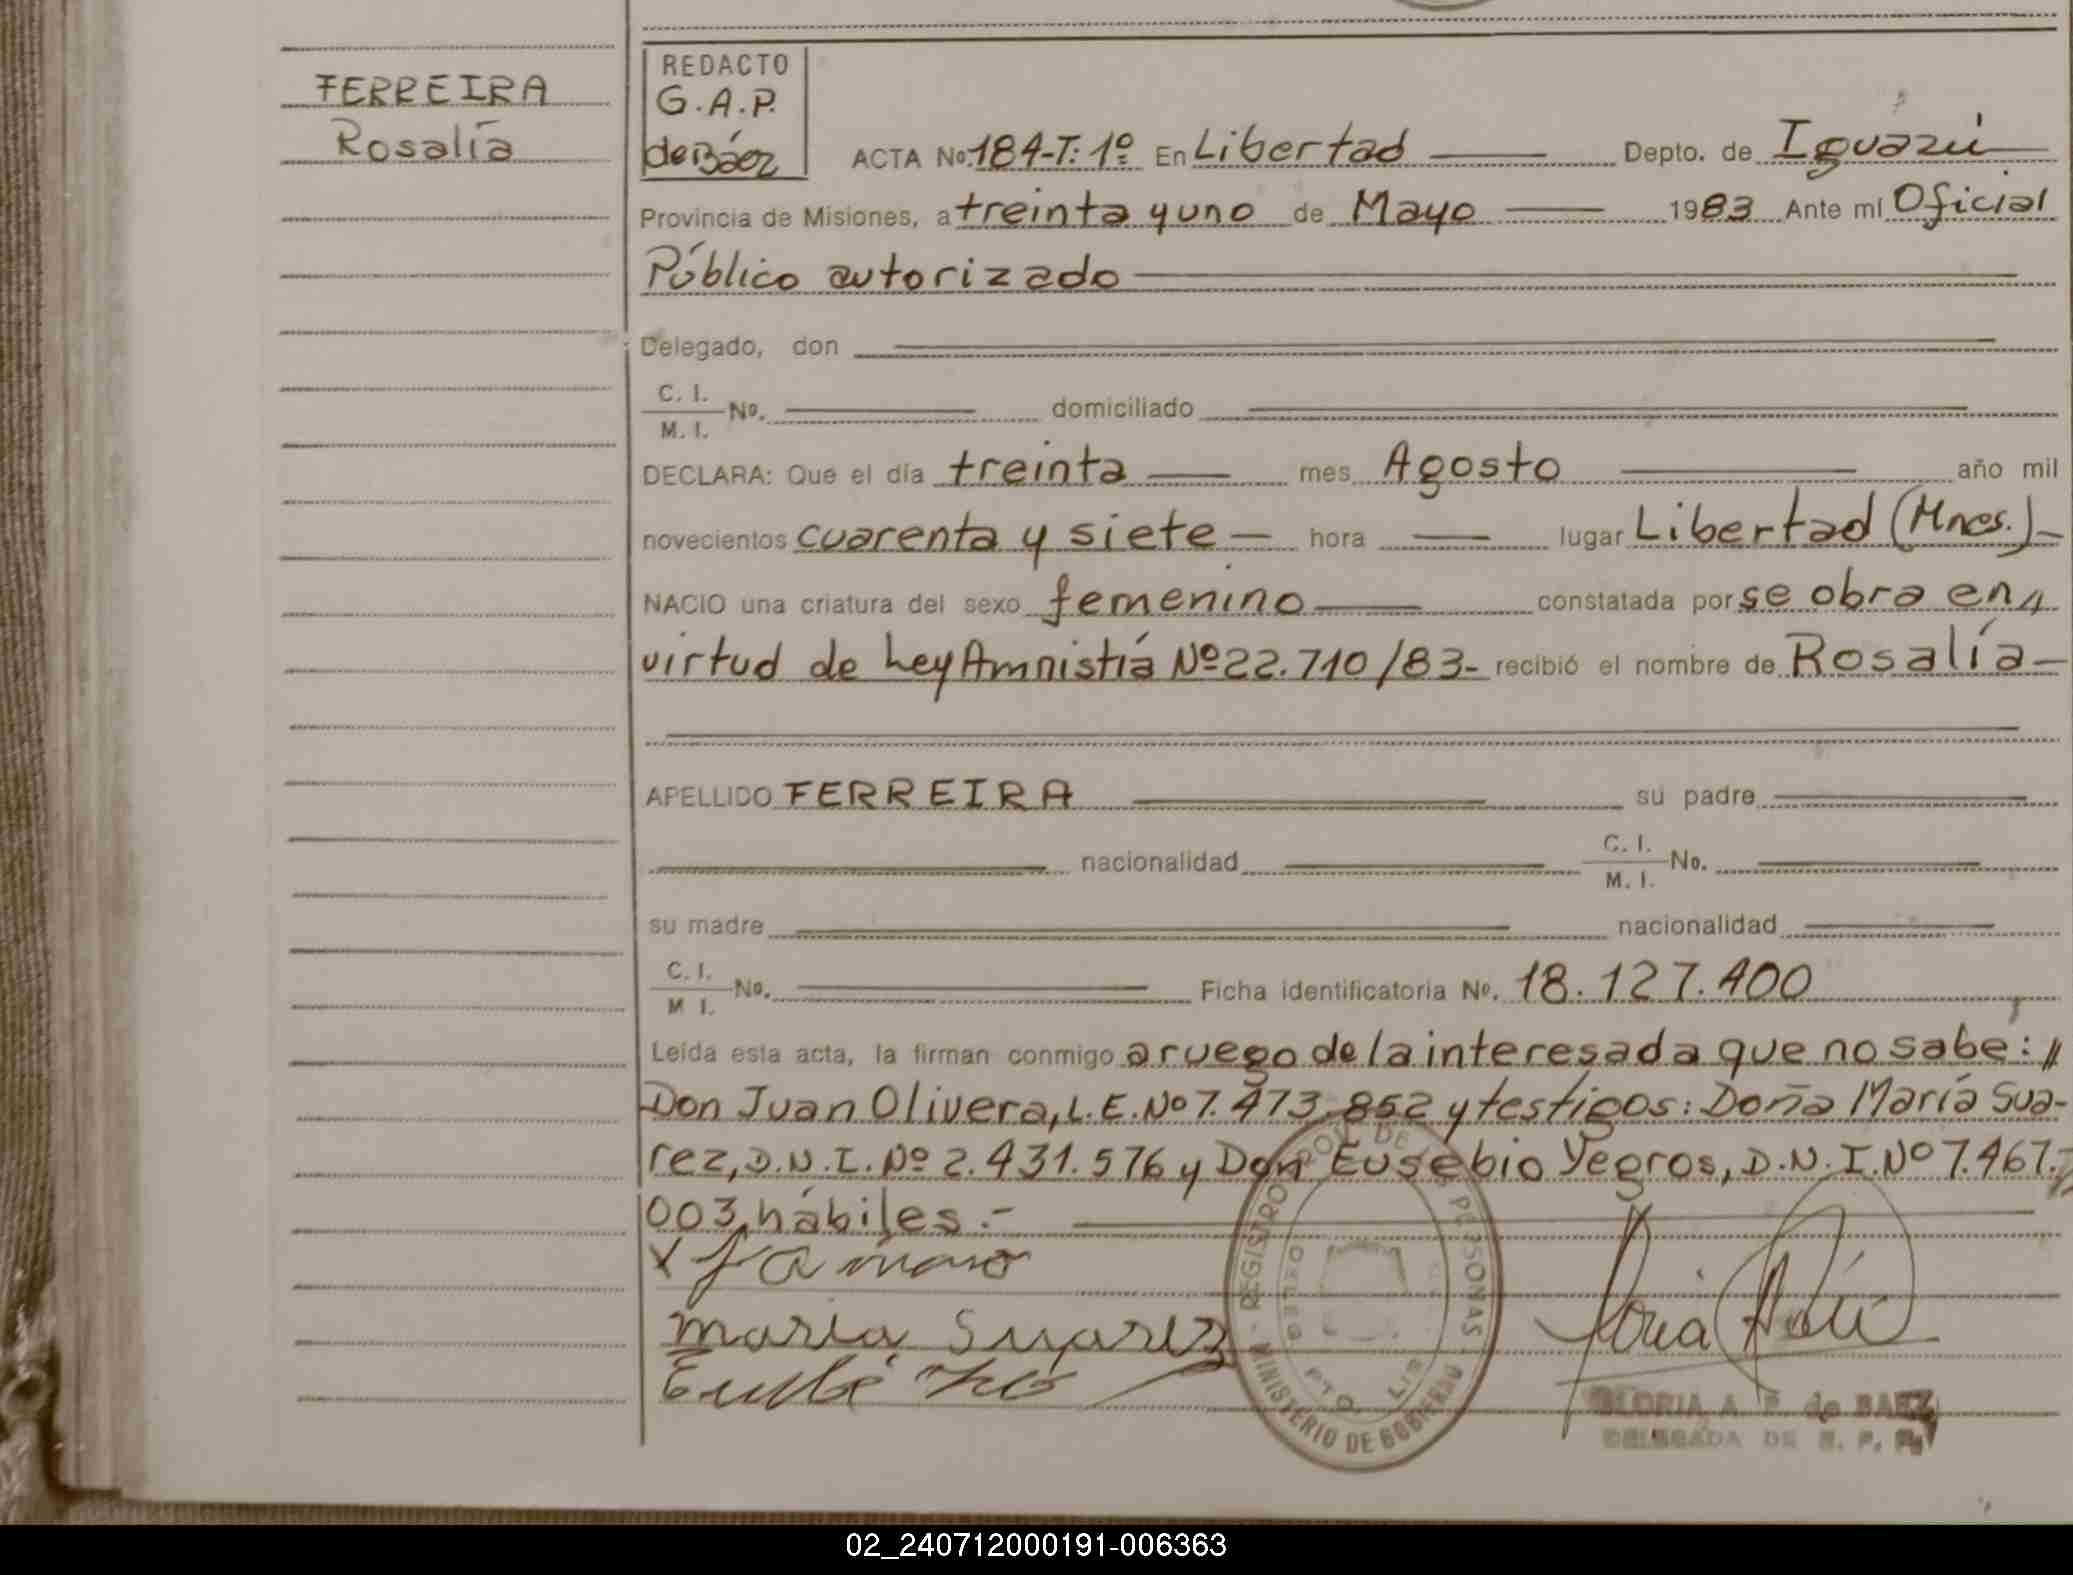 FERREIRA
Rosalía
REDACTO
G.A.P.
de Báez
ACTA No. 184-T: 1º En Libertad Depto. de Iguazú
Provincia de Misiones, a treinta y uno de Mayo 1983 Ante mí Oficial
Público autorizado
Delegado, don
C. I.
M. I. No. domiciliado
DECLARA: Que el día treinta mes Agosto año mil
novecientos cuarenta y siete — hora lugar Libertad (Mnes.)-
NACIO una criatura del sexo femenino constatada por se obra en//
virtud de Ley Amnistía Nº 22.710/83- recibió el nombre de Rosalía-
APELLIDO FERREIRA su padre
nacionalidad C. I.
M. I. No.
su madre nacionalidad
C. I.
M I. No. Ficha identificatoria No. 18.127.400
Leída esta acta, la firman conmigo a ruego de la interesada que no sabe: //
Don Juan Olivera, L.E. Nº 7.473.852 y testigos: Doña María Sua-
rez, D.N.I. Nº 2.431.576 y Don Eusebio Yegros, D.N.I. Nº 7.467.//
003, hábiles.-
María Suarez
REGISTRO PROV. DE LAS PERSONAS
MINISTERIO DE GOBIERNO
GLORIA A. P. de BAEZ
DELEGADA DE R. P. P.
02_240712000191-006363